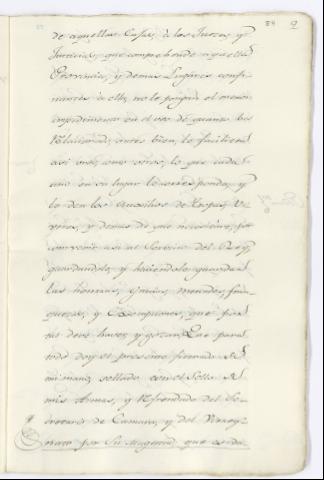 84 9
de aquellas Casas, a los Jueces, y
Justicias, que comprehende aquella
Provincia, y demas Lugares confi-
nantes à ella, no le pongan el menor
impedimento en el uso de quanto ba
Relacionado, antes bien, le faciliten
asi unos, como otros, lo que cada
uno en su lugar le corresponda, y
le den los auxilios de Tropas, Vi-
veres, y demas de que necesitare, por
convenir asi al Servicio del Rey,
guardandole, y haciendole guardar
las honras, gracias, mercedes, fran-
quezas, y Exempciones, que por
su deve haver, y gozar. Que para
todo doy el presente firmado de
mi mano, sellado con el Sello de
mis Armas, y Refrendado del Se-
cretario de Camara, y del Virrey-
nato por Su Magestad, que es da